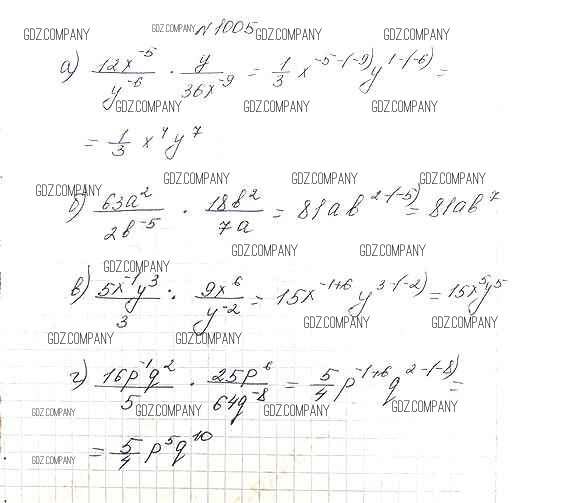 GDZ.COMPANY GDZ.COMPANY N 1005 GDZ.COMPANY GDZ.COMPANY
а) 12x^-5 / y^-6 · y / 36x^-9 = 1/3 x^-5-(-9) y^1-(-6) =
GDZ.COMPANY GDZ.COMPANY GDZ.COMPANY
= 1/3 x^4 y^7
GDZ.COMPANY GDZ.COMPANY GDZ.COMPANY
GDZ.COMPANY
б) 63a^2 / 2b^-5 · 18b^2 / 7a = 81ab^2-(-5) = 81ab^7
GDZ.COMPANY GDZ.COMPANY
GDZ.COMPANY
в) 5x^-1y^3 / 3 · 9x^6 / y^-2 = 15x^-1+6 y^3-(-2) = 15x^5y^5
GDZ.COMPANY GDZ.COMPANY
GDZ.COMPANY GDZ.COMPANY
г) 16p^-1q^2 / 5 · 25p^6 / 64q^-8 = 5/4 p^-1+6 q^2-(-8) =
GDZ.COMPANY GDZ.COMPANY GDZ.COMPANY GDZ.COMPANY
= 5/4 p^5q^10
GDZ.COMPANY